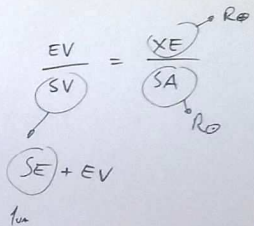 EV / SV = XE / SA
R⊕
R⊙
SE + EV